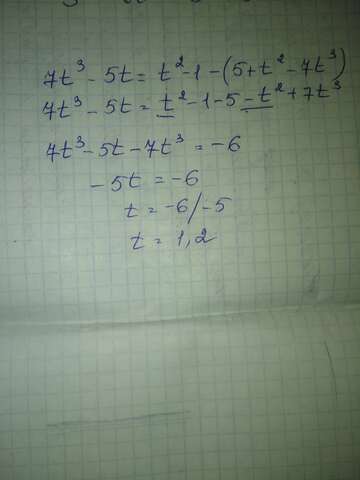 7t³ - 5t = t² - 1 - (5 + t² - 7t³)
7t³ - 5t = t² - 1 - 5 - t² + 7t³
7t³ - 5t - 7t³ = -6
- 5t = -6
t = -6/-5
t = 1,2